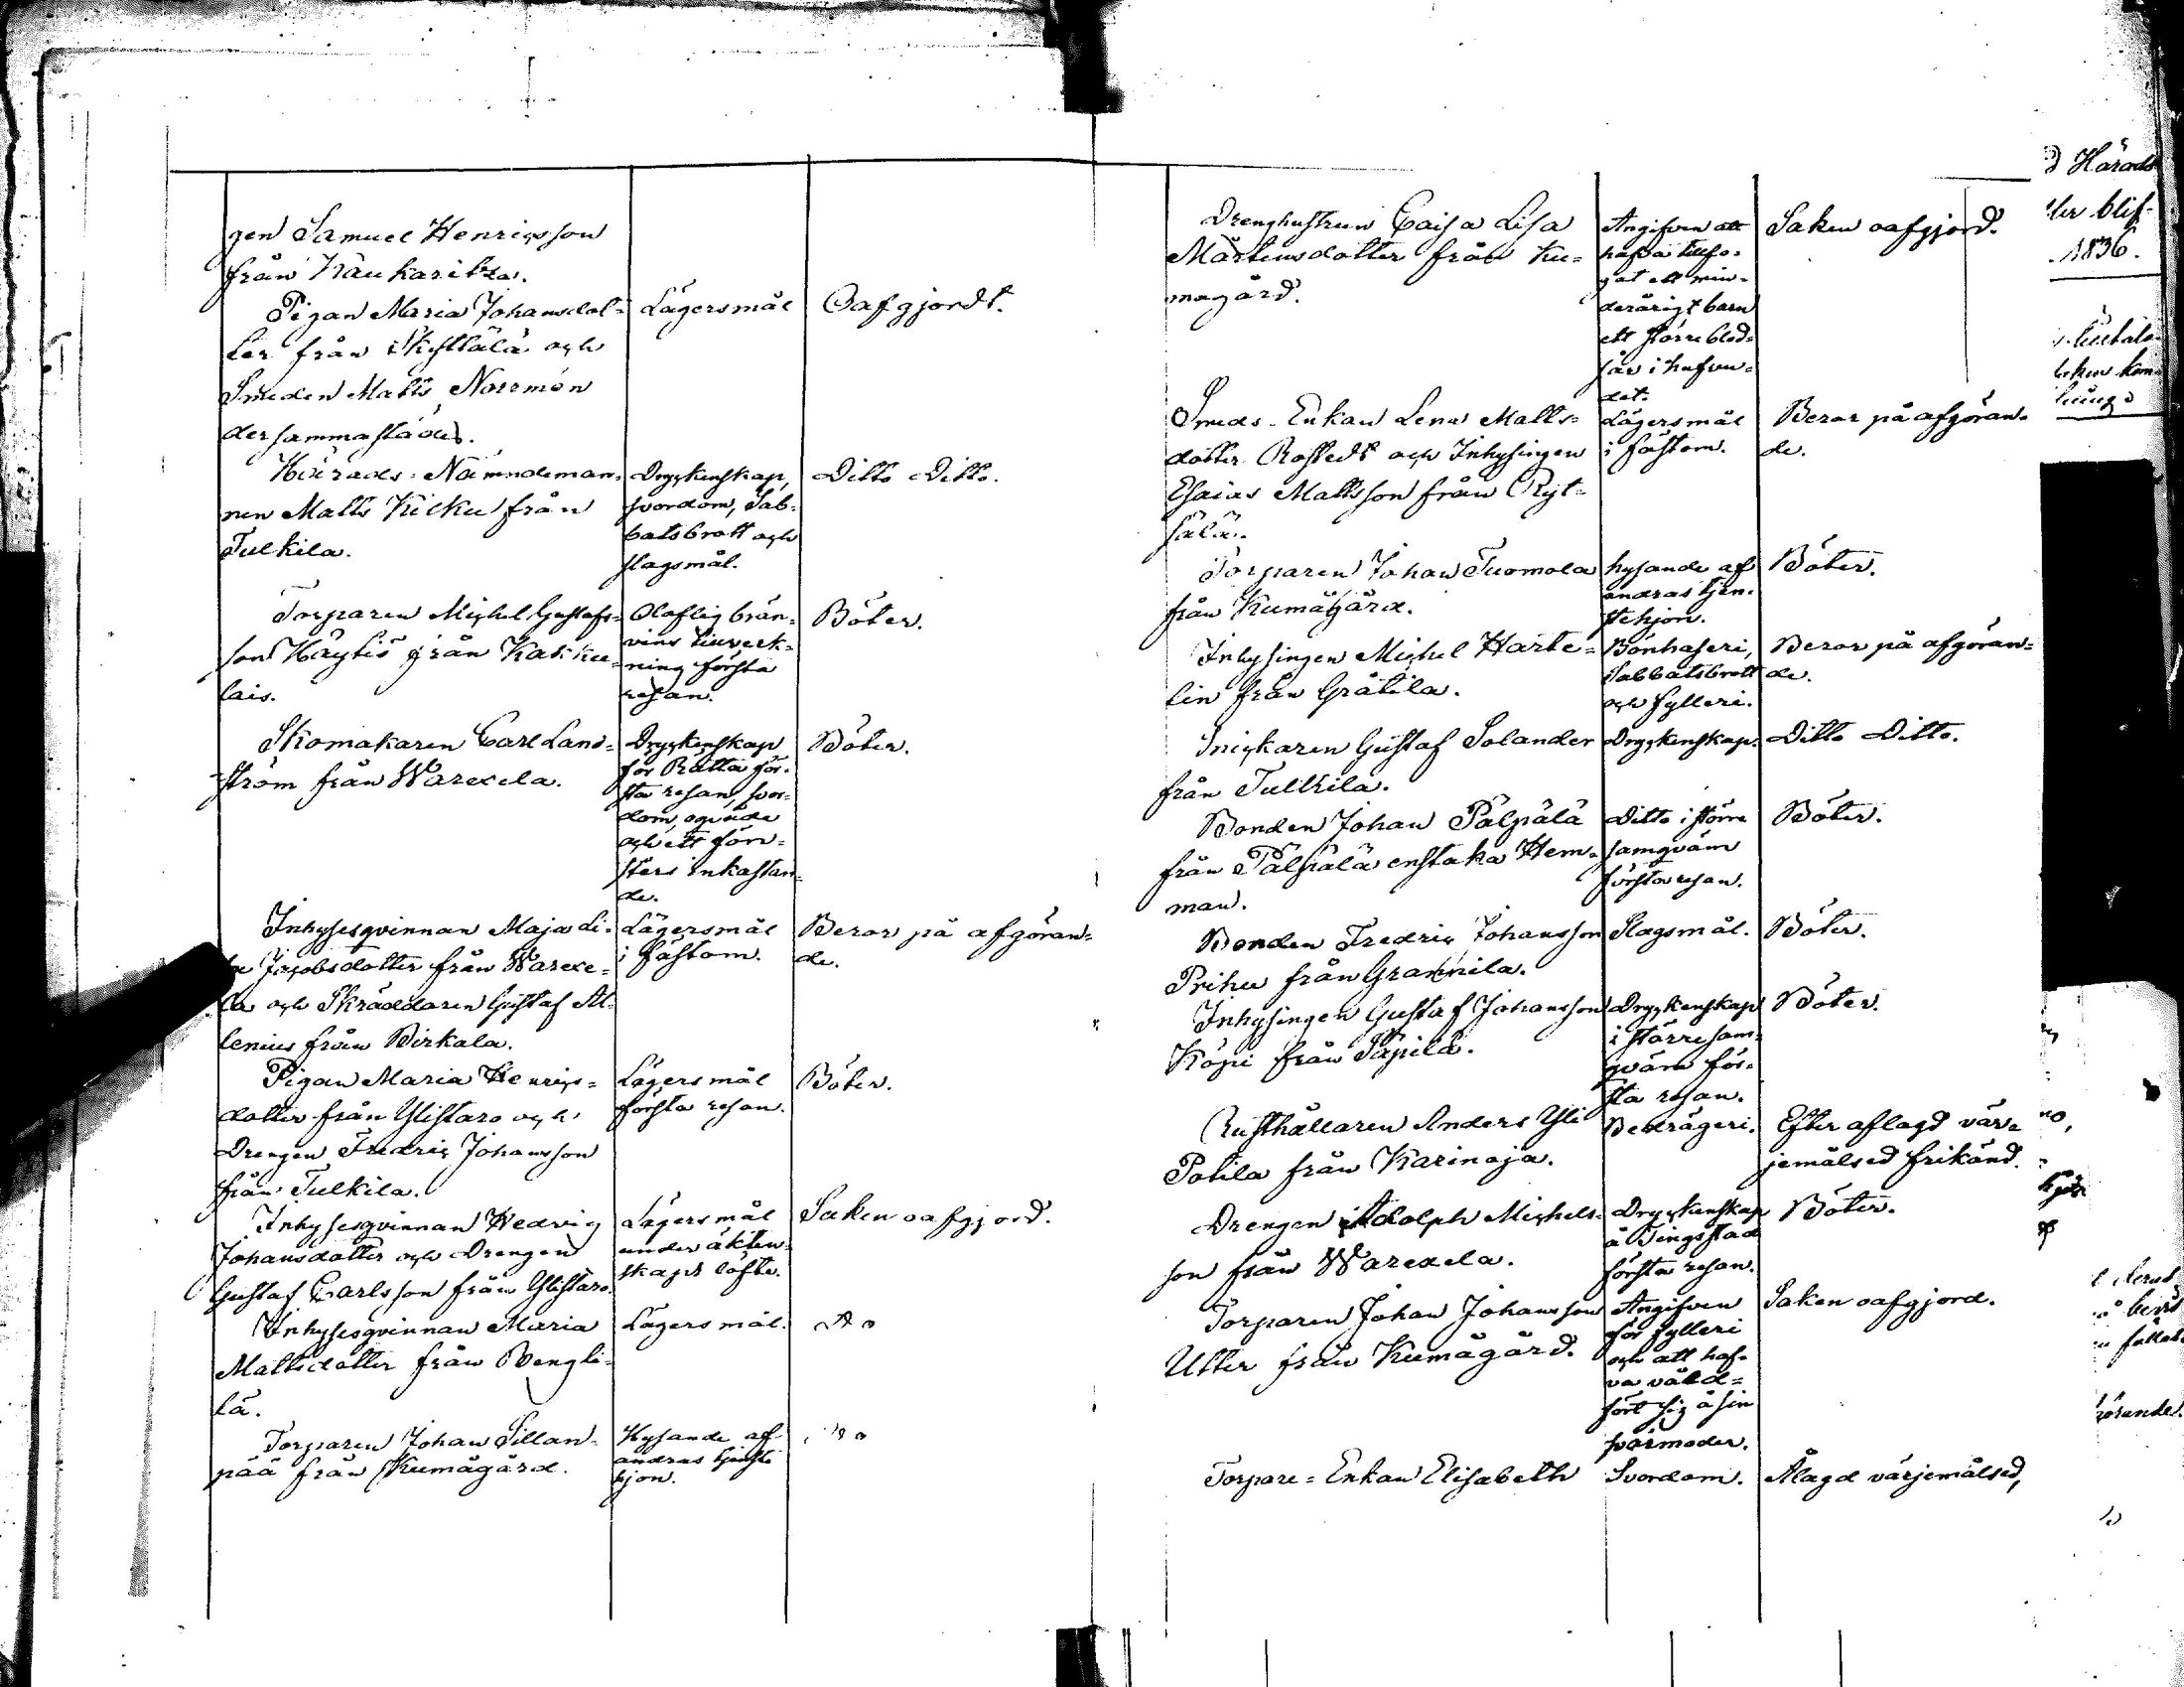 gen Samuel Henricsson
från Kaukaritza.
Pigan Maria Johansdot=
ter från Skittälä och
Smeden Matts Norrmén
dersammastädes.
Lägersmål
Oafgjordt.
Härads-Nämndeman=
nen Matts Kilku från
Tulkila.
Dryckenskap,
svordom, Sab=
batsbrott och
slagsmål.
Ditto Ditto.
Torparen Michel Gustafs=
son Häytiö från Kakku=
lais.
Olaflig brän=
vins tillverk=
ning första
resan.
Böter.
Skomakaren Carl Land=
ström från Warexela.
Dryckenskap
för Rätta för=
sta resan, svor=
dom, oqväde
och ett fön=
sters inkastan=
de.
Böter.
Inhysesqvinnan Maja Li=
sa Jacobsdotter från Warexe=
la och Skräddaren Gustaf Al=
lenius från Birkala.
Lägersmål
i fästom.
Beror på afgöran=
de.
Pigan Maria Henrics=
dotter från Ylistaro och
Drengen Fredric Johansson
från Tulkila.
Lägersmål
första resan.
Böter.
Inhysesqvinnan Hedvig
Johansdotter och Drengen
Gustaf Carlsson från Ylistaro
Lägersmål
under ákten=
skaps löfte.
Saken oafgjord.
Inhysesqvinnan Maria
Mattsdotter från Bengti=
lä.
Lägersmål.
Do
Torparen Johan Sillan=
pää från Kumågård.
Hysande af
andras tjenste
hjon.
Do
Drenghustrun Caisa Lisa
Mårtensdotter från Ku=
magård.
Angifven att
hafva tillfo=
gat ett min=
derårigt barn
ett större blod=
sår i hufvu=
det.
Saken oafgjord.
Smeds-Enkan Lena Matts=
dotter Rostedt och Inhysingen
Esaias Mattsson från Ryt=
sälä.
Lägersmål
i fästom.
Beror på afgöran=
de.
Torparen Johan Tuomola
från Kumågård.
hysande af
andras tjen=
stehjon.
Böter.
Inhysingen Michel Harte=
lin från Gråtila.
Bönhaseri,
Sabbatsbrott
och fylleri.
Beror på afgöran=
de.
Snickaren Gustaf Solander
från Tulkila.
Dryckenskap.
Ditto Ditto.
Bonden Johan Pälpälä
från Pälpälä enstaka Hem=
man.
Ditto i större
samqväm
första resan.
Böter.
Bonden Fredric Johansson
Prihu från Grannila.
Slagsmål.
Böter.
Inhysingen Gustaf Johansson
Köpi från Säpilä.
Dryckenskap
i större sam=
qväm för=
sta resan.
Böter.
Rusthållaren Anders Yli
Potila från Karinoja.
Bedrägeri.
Efter aflagd vär=
jemålsed frikänd.
Drengen Adolph Michels=
son från Warexela.
Dryckenskap
å Tingsstad
första resan.
Böter.
Torparen Johan Johansson
Utter från Kumågård.
Angifven
för fylleri
och att haf=
va våld=
fört sig å sin
svärmoder.
Saken oafgjord.
Torpare-Enkan Elisabeth
Svordom.
Ålagd värjemålsed,
d Härads
ler blif-
1836.